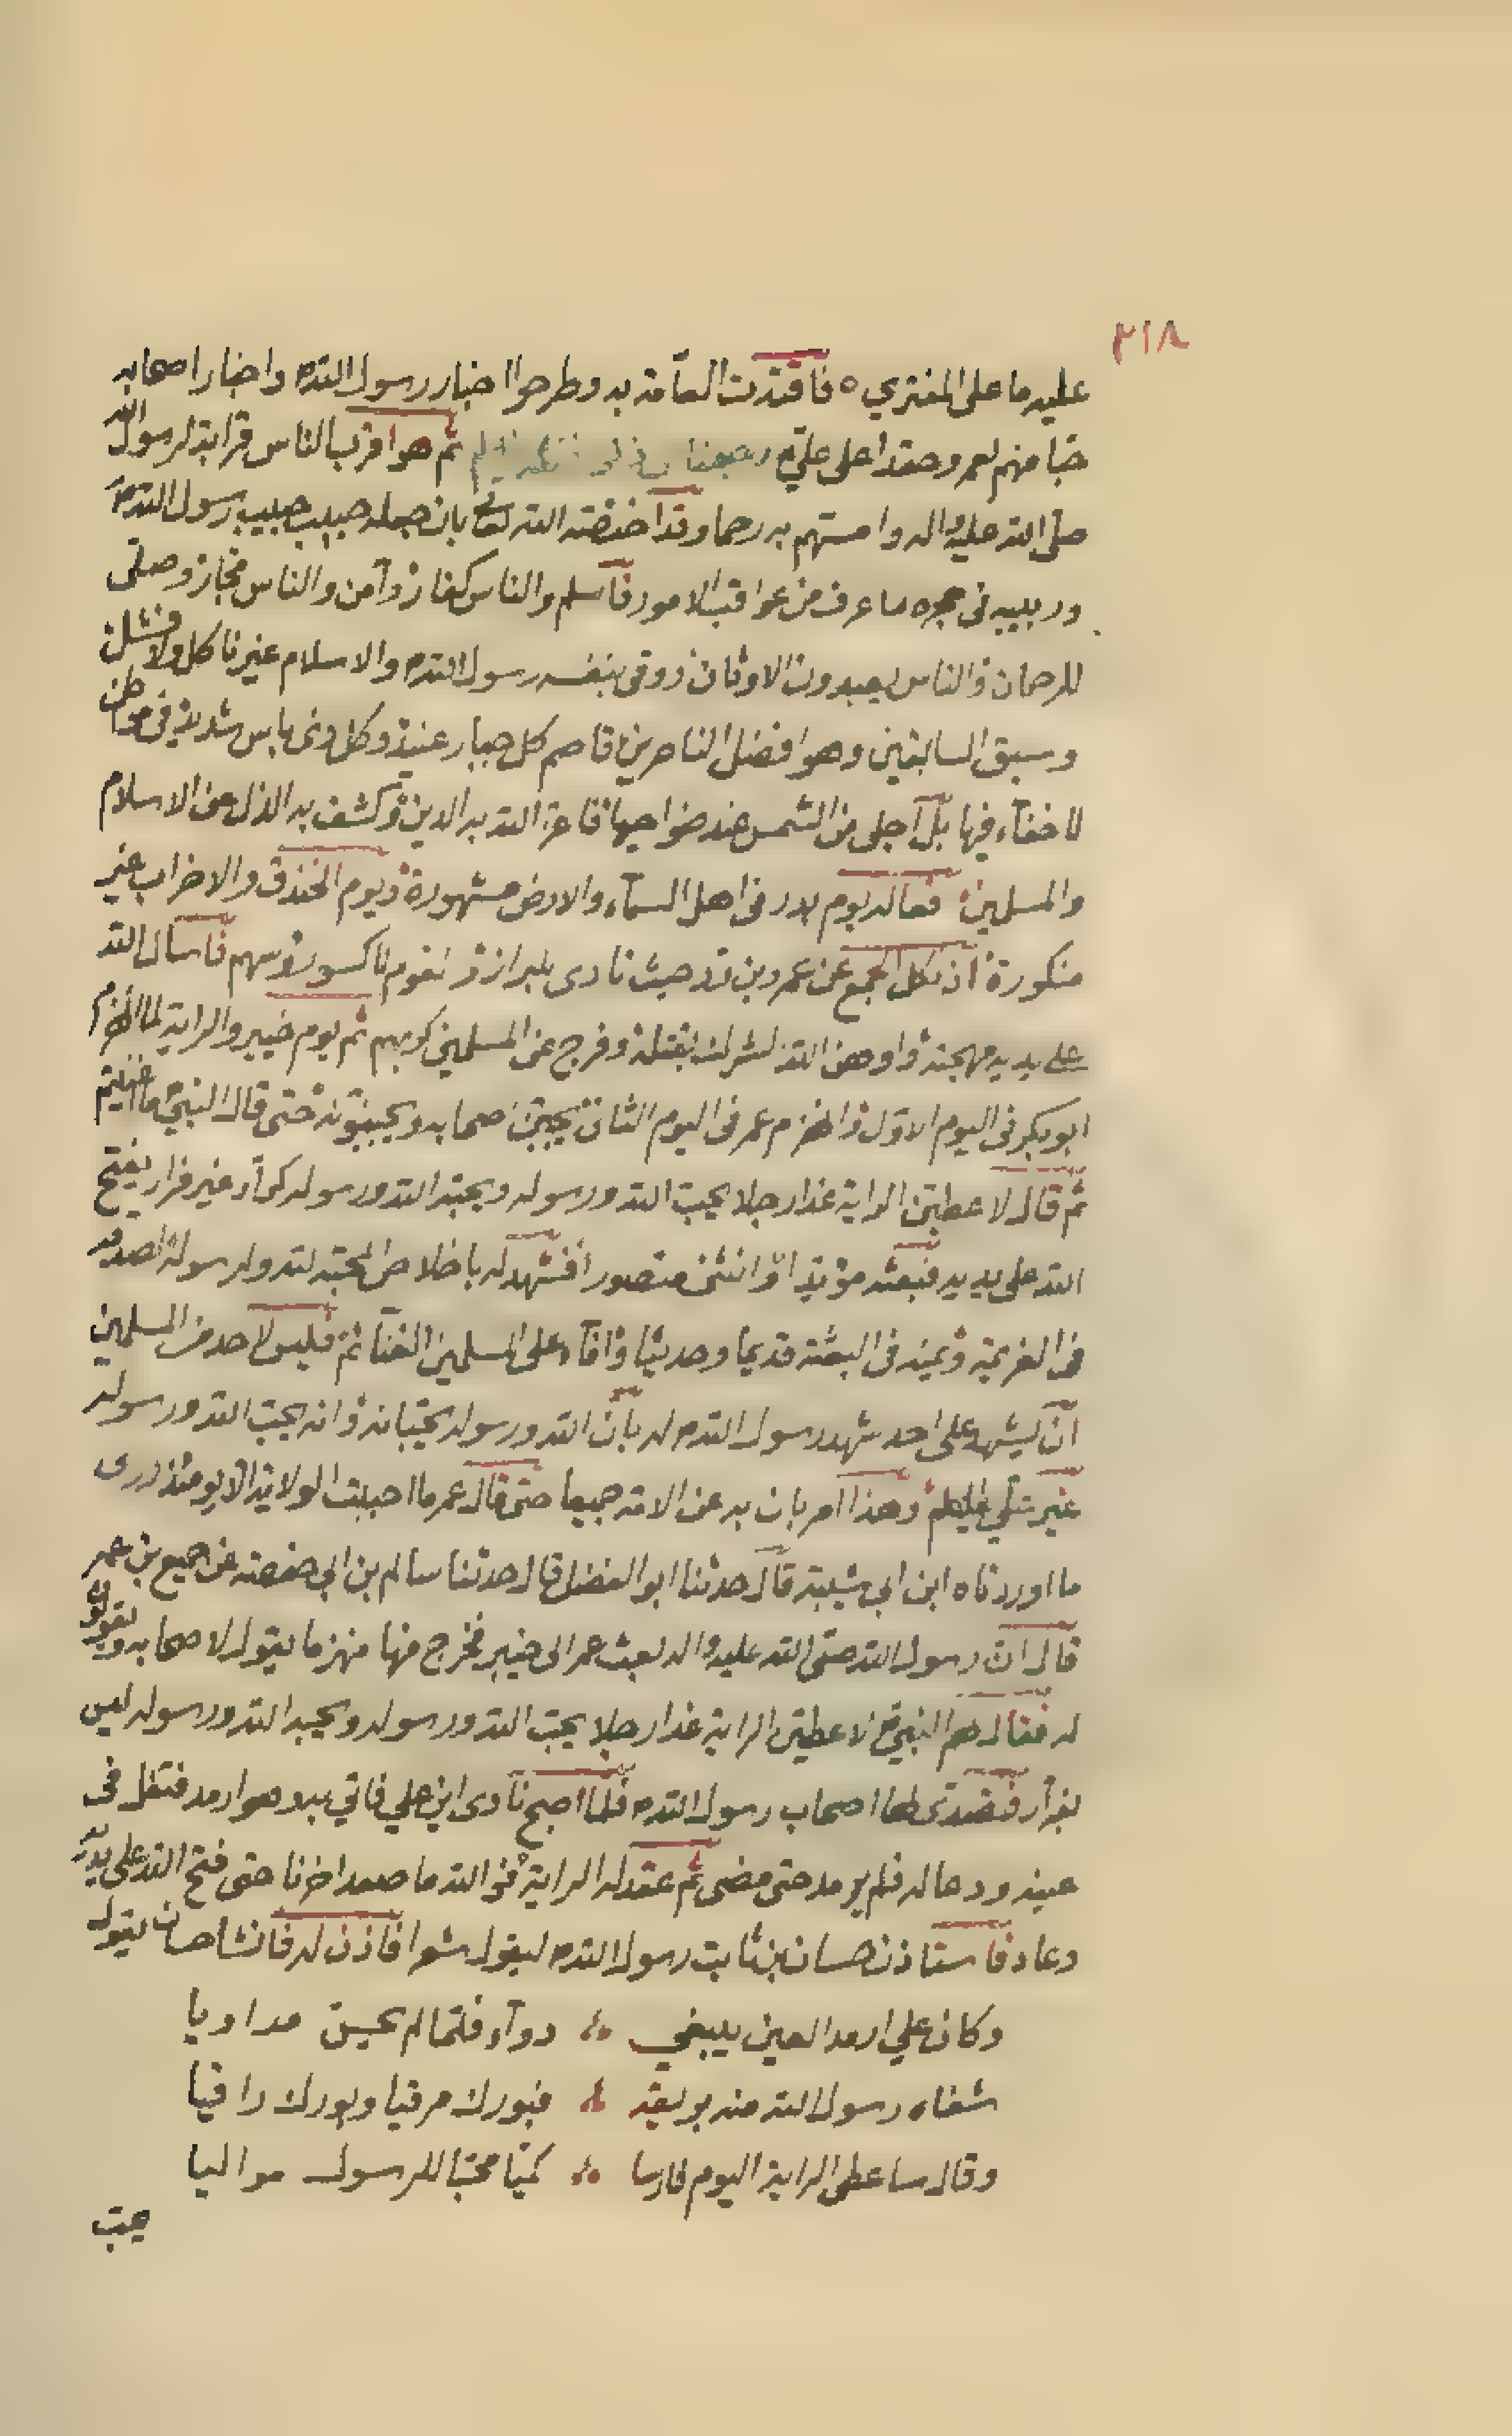 ٢١٨
عليه ما على المفتري ه فاقتدت العامة به وطرحوا اخبار رسول الله واخبار اصحابه
حبا منهم لعمر وحقدا على علي ثم هو اقرب الناس قرابة لرسول الله
صلى الله عليه واله وامستهم به رحما وقد اختصه الله تعالى بان جعله حبيب رسول الله
وربيبه في حجره ما عرف من عواقب الامور فاسلم والناس كفار وآمن والناس فجار وصلى
للرحمان والناس يعبدون الاوثان ووقى بنفسه رسول الله والاسلام غير ناكل ولا فشل
وسبق السابقين وهو افضل الناصرين قاصم كل جبار عنيد وكل ذى باس شديد في مواطن
لا خفاء فيها بل اجلى من الشمس عند ضواحيها فاعز الله به الدين وكشف به الذل عن الاسلام
والمسلمين فعاله يوم بدر في اهل السماء والارض مشهورة ويوم الخندق والاحزاب غير
منكورة اذ نكل الجمع عن عمرو بن ود حيث نادى بلبراز فاسال الله
على يديه مهجته واوهن الله الشرك بقتله وفرج عن المسلمين كربهم ثم يوم خيبر والراية لما انهزم
ابو بكر في اليوم الاول وانهزم عمر في اليوم الثاني يجبن اصحابه ويجبنونه حتى قال النبي ما
ثم قال لاعطين الراية غدا رجلا يحب الله ورسوله ويحبه الله ورسوله كرار غير فرار يفتح
الله على يديه فبعثه مؤيدا وانثنى منصورا فشهد له باخلاص المحبة لله ولرسوله
في العزيمة في البعثة قديما وحديثا وافاء على المسلمين الغنائم فليس لاحد من المسلمين
ان يشهد على احد شهد رسول الله له بان الله ورسوله يحبانه وانه يحب الله ورسوله
غير علي وهذا امر بان به عن الامة جميعا حتى قال عمر ما احببت الولاية الا يومئذ
ما اوردناه ابن ابي شيبة قال حدثنا ابو الفضل قال حدثنا سالم بن ابي حفصة عن جميع بن عمر
قال ان رسول الله صلى الله عليه واله بعث عمر الى خيبر فخرج منها منهزما يقول لاصحابه ويقولون
له فقال لهم النبي لاعطين الراية غدا رجلا يحب الله ورسوله ويحبه الله ورسوله ليس
بفرار فتصدى لها اصحاب رسول الله فلما اصبح نادى اين علي فاتي به وهو ارمد فتفل في
عينه ودعا له فلم يرمد حتى مضى ثم عقد له الراية فو الله ما صعد اخرنا حتى فتح الله على يديه
وعاد فاستاذن حسان بن ثابت رسول الله ليقول شعرا فاذن له فانشا حسان يقول
وكان علي ارمد العين يبتغي دوآء فلما لم يحس مداويا
شفاه رسول الله منه بريقه فبورك مرقيا وبورك راقيا
وقال ساعطى الراية اليوم فارسا كميا محبا للرسول مواليا
يحب